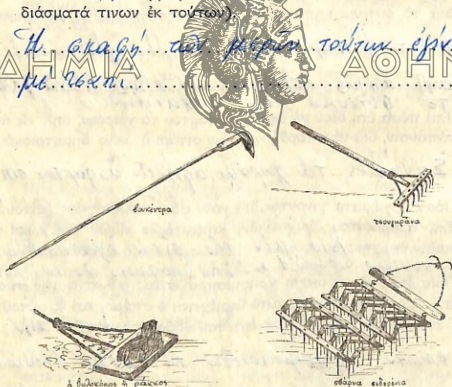 διάσματά τινων ἐκ τούτων).
Ἡ σκαφὴ τῶν μερῶν τούτων ἐγίν
μὲ τσαπὶ
ΔΗΜΙΑ ΑΘΗΝ
βουκέντρα
τσουγκράνα
ὁ βωλοκόπος ἢ ράκκος
σβάρνα σιδερένια